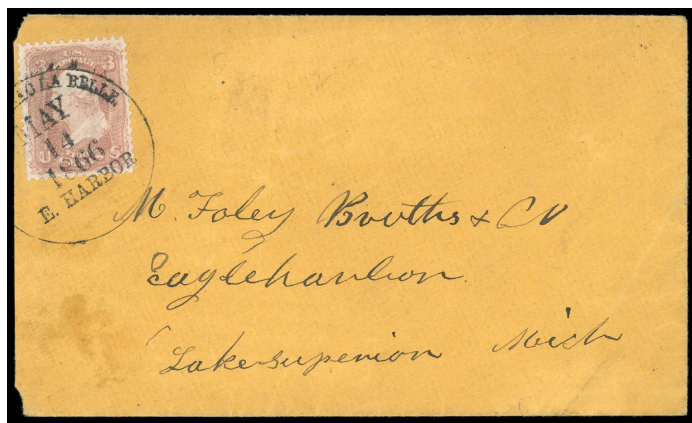 3 3
LAC LA BELLE
MAY
14
1866
E. HARBOR
M. Foley Brouths & Co
Eagleharbor
Lakesuperior Mich